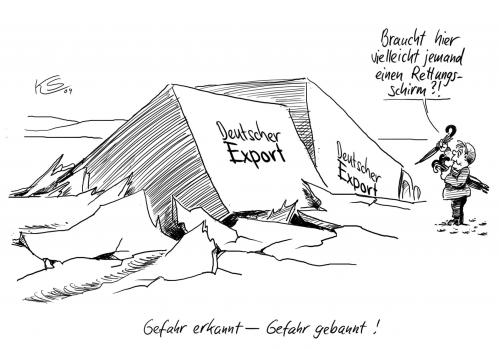 Braucht hier
vielleicht jemand
einen Rettungs-
schirm?!
KS
09
Deutscher
Export
Deutscher
Export
Gefahr erkannt – Gefahr gebannt!